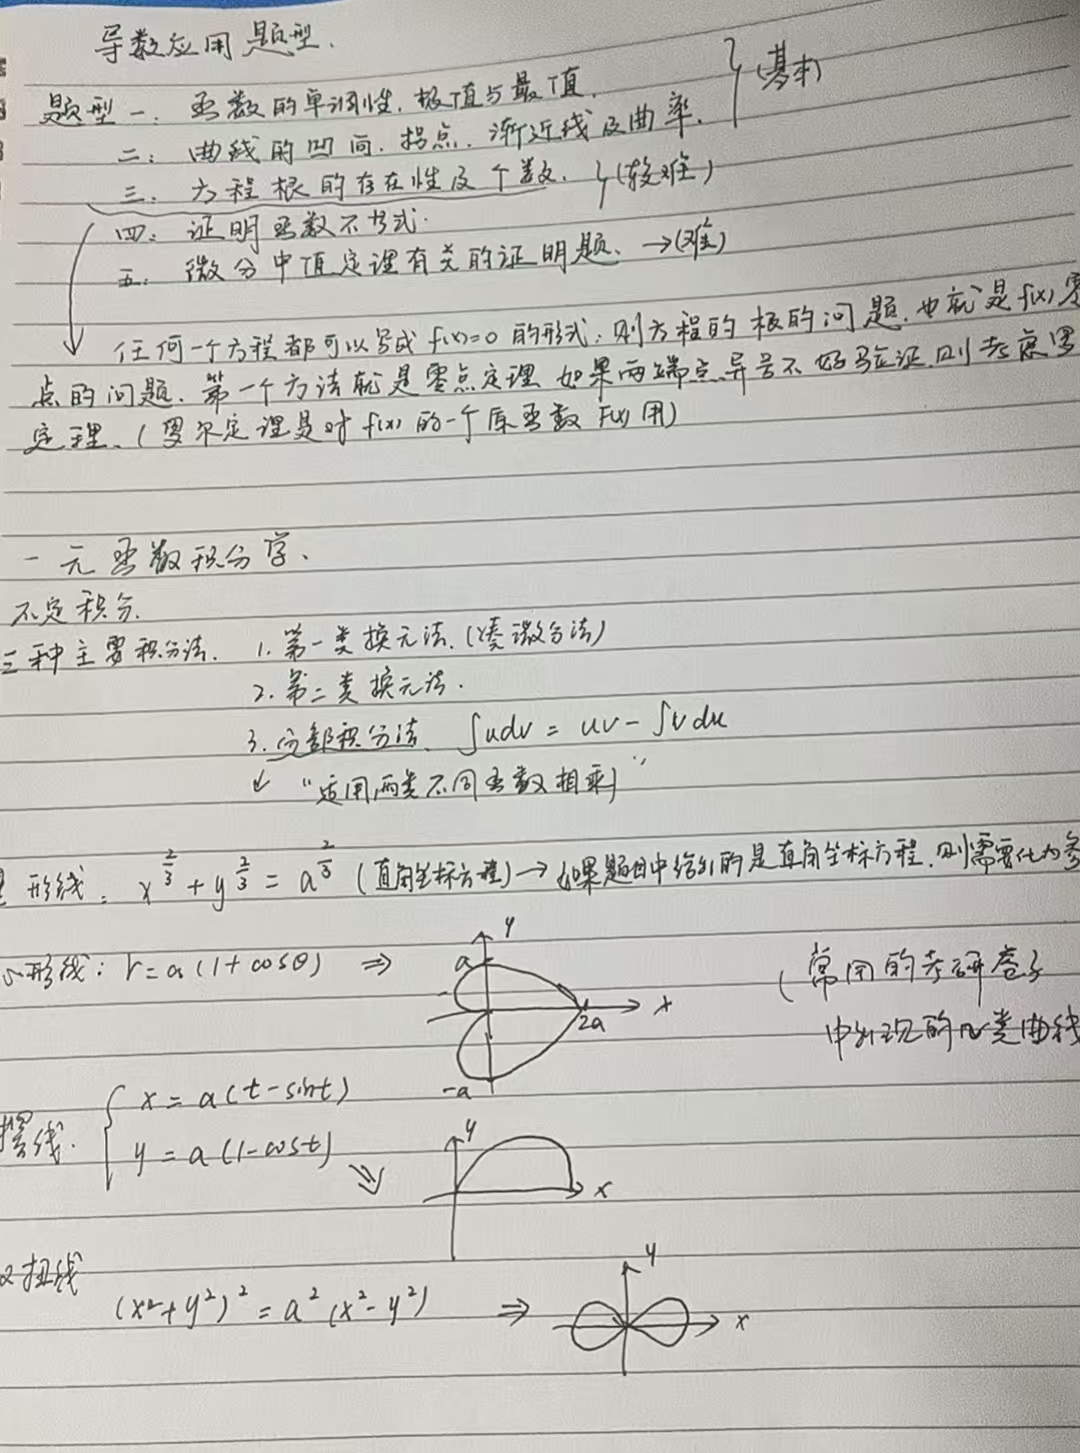 导数应用题型.
题型一. 函数的单调性. 极值与最值. (基本)
二: 曲线的凹向. 拐点. 渐近线及曲率.
三. 方程根的存在性及个数. (较难)
四: 证明函数不等式.
五. 微分中值定理有关的证明题. →(难)
任何一个方程都可以写成 f(x)=0 的形式; 则方程的根的问题. 也就是 f(x) 零
点的问题. 第一个方法就是零点定理 如果两端点异号不好验证. 则考虑罗
定理. (罗尔定理是对 f(x) 的一个原函数 F(x) 用)
一元函数积分学.
不定积分.
三种主要积分法. 1. 第一类换元法. (凑微分法)
2. 第二类换元法.
3. 分部积分法. ∫udv = uv - ∫vdu
↙ "适用两类不同函数相乘"
形线: x^{2/3} + y^{2/3} = a^{2/3} (直角坐标方程) → 如果题目中给出的是直角坐标方程. 则需要化为参
形线: r = a(1+cosθ) ⇒
y
a
x
2a
-a
(常用的考研卷子
中出现的几类曲线
摆线. { x = a(t-sint)
y = a(1-cost) ⇒
y
x
扭线
(x²+y²)² = a²(x²-y²) ⇒
y
x